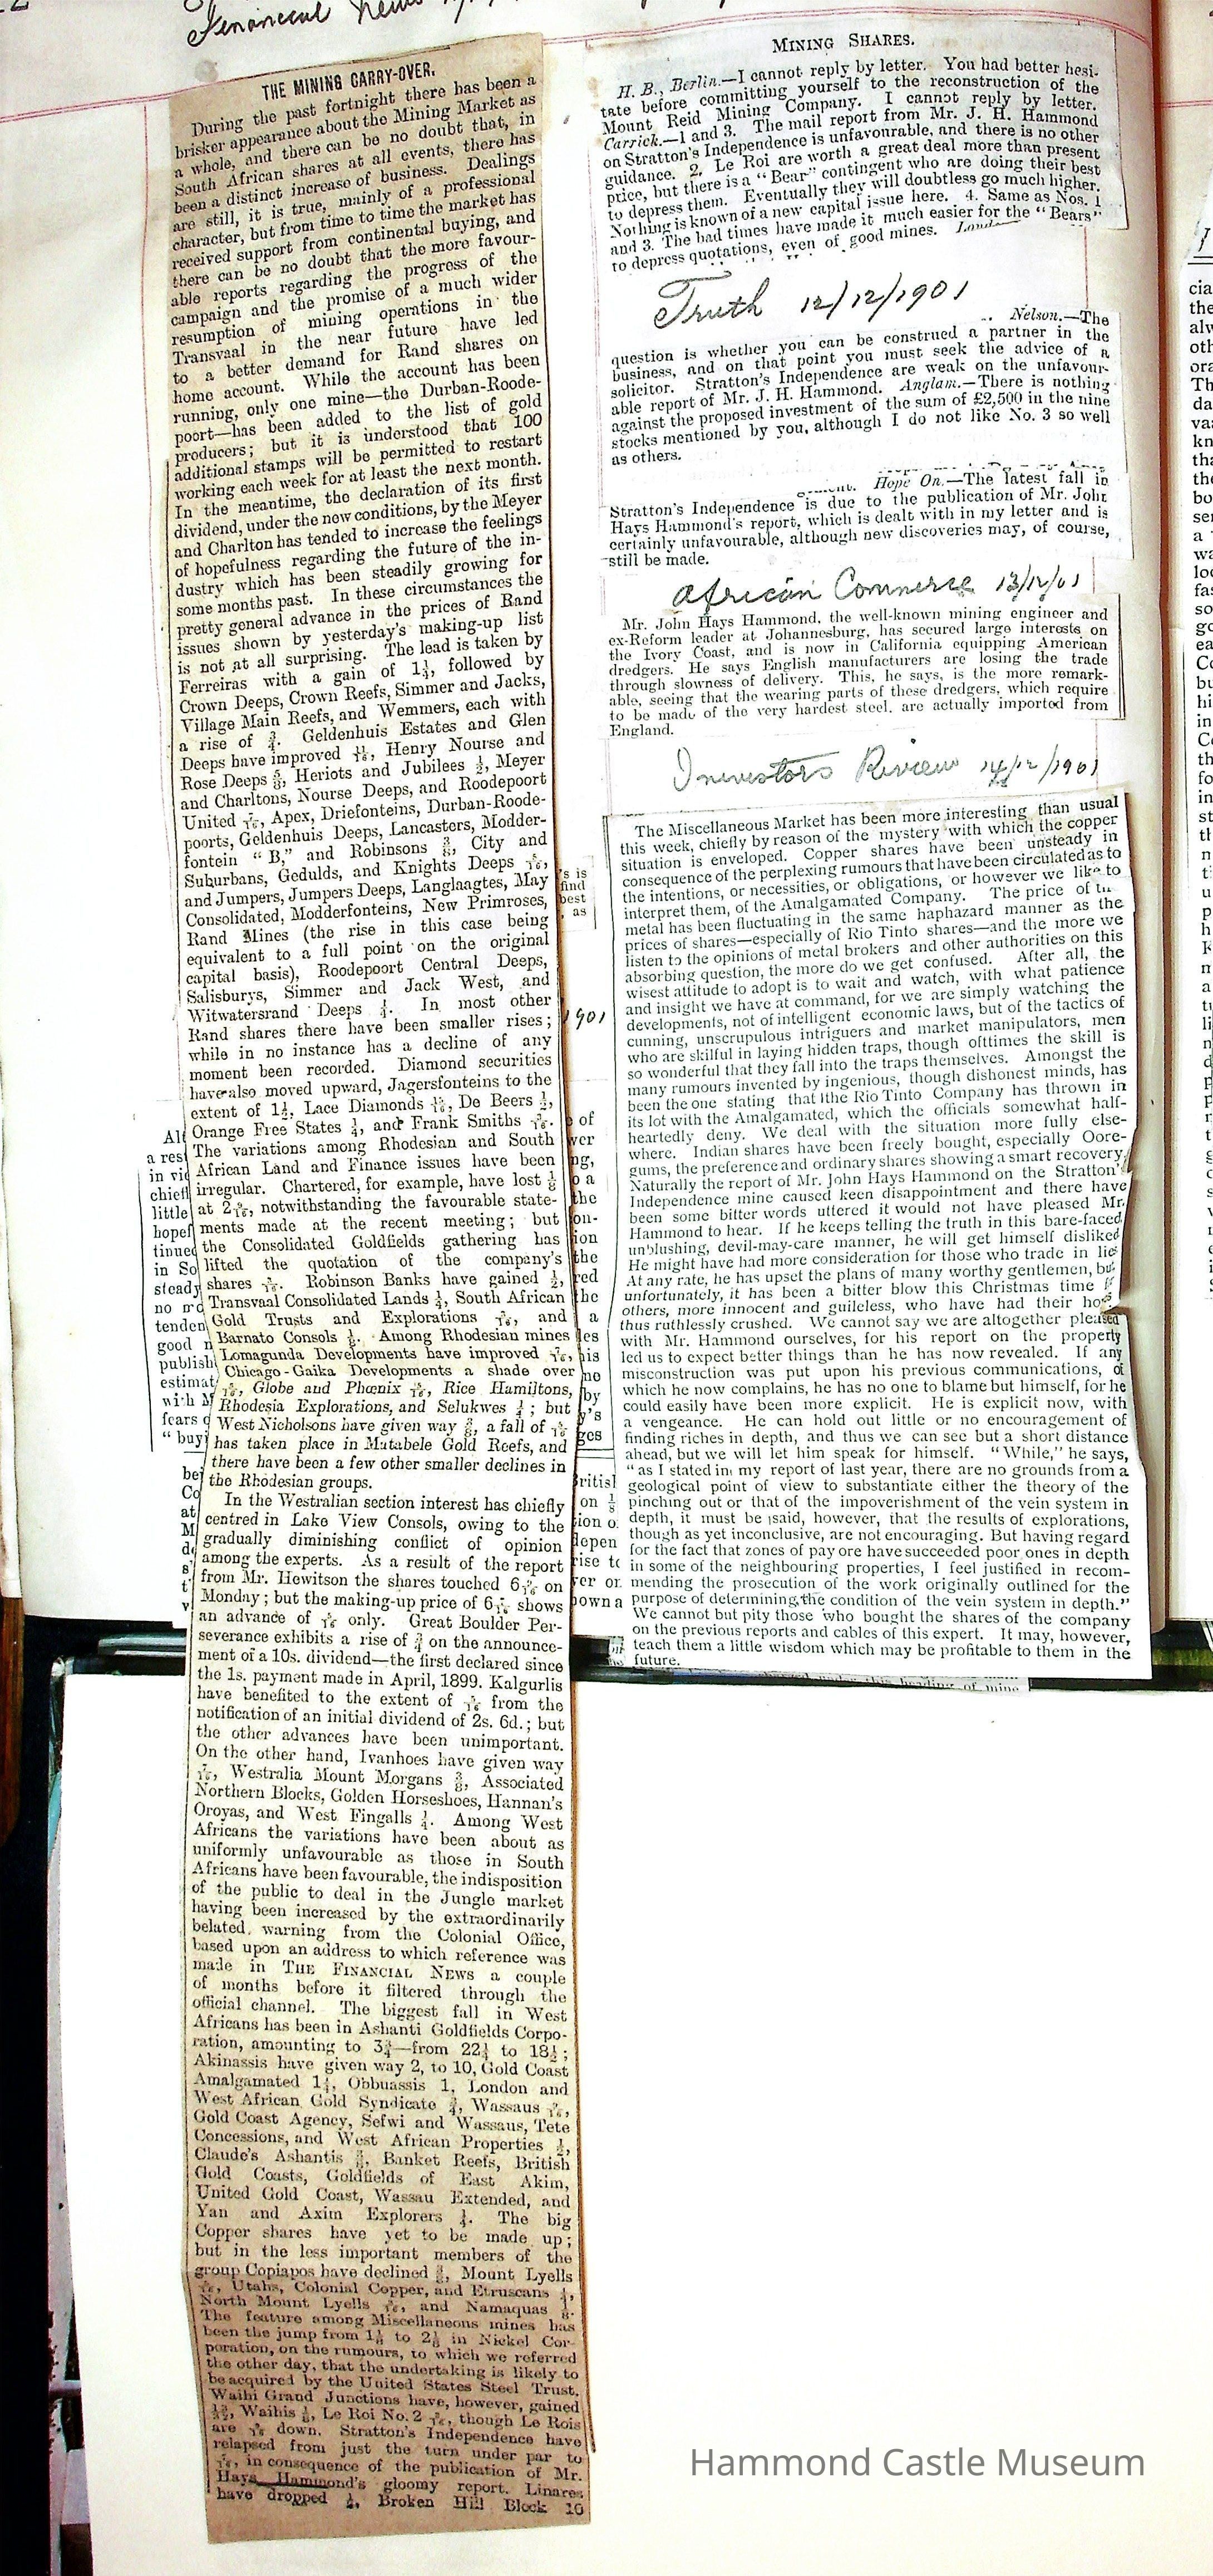 Financial News
THE MINING CARRY-OVER.
During the past fortnight there has been a
brisker appearance about the Mining Market as
a whole, and there can be no doubt that, in
South African shares at all events, there has
been a distinct increase of business. Dealings
are still, it is true, mainly of a professional
character, but from time to time the market has
received support from continental buying, and
there can be no doubt that the more favour-
able reports regarding the progress of the
campaign and the promise of a much wider
resumption of mining operations in the
Transvaal in the near future have led
to a better demand for Rand shares on
home account. While the account has been
running, only one mine—the Durban-Roode-
poort—has been added to the list of gold
producers; but it is understood that 100
additional stamps will be permitted to restart
working each week for at least the next month.
In the meantime, the declaration of its first
dividend, under the new conditions, by the Meyer
and Charlton has tended to increase the feelings
of hopefulness regarding the future of the in-
dustry which has been steadily growing for
some months past. In these circumstances the
pretty general advance in the prices of Rand
issues shown by yesterday's making-up list
is not at all surprising. The lead is taken by
Ferreiras with a gain of 1¼, followed by
Crown Deeps, Crown Reefs, Simmer and Jacks,
Village Main Reefs, and Wemmers, each with
a rise of ¾. Geldenhuis Estates and Glen
Deeps have improved 11/16, Henry Nourse and
Rose Deeps ⅝, Heriots and Jubilees ½, Meyer
and Charltons, Nourse Deeps, and Roodepoort
United 7/16, Apex, Driefonteins, Durban-Roode-
poorts, Geldenhuis Deeps, Lancasters, Modder-
fontein "B," and Robinsons ⅜, City and
Suburbans, Gedulds, and Knights Deeps 5/16,
and Jumpers, Jumpers Deeps, Langlaagtes, May
Consolidated, Modderfonteins, New Primroses,
Rand Mines (the rise in this case being
equivalent to a full point on the original
capital basis), Roodepoort Central Deeps,
Salisburys, Simmer and Jack West, and
Witwatersrand Deeps ¼. In most other
Rand shares there have been smaller rises;
while in no instance has a decline of any
moment been recorded. Diamond securities
have also moved upward, Jagersfonteins to the
extent of 1½, Lace Diamonds De Beers ½,
Orange Free States ¼, and Frank Smiths
The variations among Rhodesian and South
African Land and Finance issues have been
irregular. Chartered, for example, have lost ⅛
at notwithstanding the favourable state-
ments made at the recent meeting; but
the Consolidated Goldfields gathering has
lifted the quotation of the company's
shares Robinson Banks have gained ½,
Transvaal Consolidated Lands ¼, South African
Gold Trusts and Explorations and
Barnato Consols ⅛. Among Rhodesian mines
Lomagunda Developments have improved
Chicago-Gaika Developments a shade over
Globe and Phœnix Rice Hamiltons,
Rhodesia Explorations, and Selukwes ¼; but
West Nicholsons have given way ⅜, a fall of
has taken place in Matabele Gold Reefs, and
there have been a few other smaller declines in
the Rhodesian groups.
In the Westralian section interest has chiefly
centred in Lake View Consols, owing to the
gradually diminishing conflict of opinion
among the experts. As a result of the report
from Mr. Hewitson the shares touched on
Monday; but the making-up price of shows
an advance of only. Great Boulder Per-
severance exhibits a rise of on the announce-
ment of a 10s. dividend—the first declared since
the 1s. payment made in April, 1899. Kalgurlis
have benefited to the extent of from the
notification of an initial dividend of 2s. 6d.; but
the other advances have been unimportant.
On the other hand, Ivanhoes have given way
Westralia Mount Morgans ⅜, Associated
Northern Blocks, Golden Horseshoes, Hannan's
Oroyas, and West Fingalls ¼. Among West
Africans the variations have been about as
uniformly unfavourable as those in South
Africans have been favourable, the indisposition
of the public to deal in the Jungle market
having been increased by the extraordinarily
belated warning from the Colonial Office,
based upon an address to which reference was
made in THE FINANCIAL NEWS a couple
of months before it filtered through the
official channel. The biggest fall in West
Africans has been in Ashanti Goldfields Corpo-
ration, amounting to 3¾—from 22¼ to 18½;
Akinassis have given way 2, to 10, Gold Coast
Amalgamated 1¼, Obbuassis 1, London and
West African Gold Syndicate ¾, Wassaus
Gold Coast Agency, Sefwi and Wassaus, Tete
Concessions, and West African Properties ½,
Claude's Ashantis ⅜, Banket Reefs, British
Gold Coasts, Goldfields of East Akim,
United Gold Coast, Wassau Extended, and
Yan and Axim Explorers ¼. The big
Copper shares have yet to be made up;
but in the less important members of the
group Copiapos have declined Mount Lyells
Utahs, Colonial Copper, and Etruscans ¼,
North Mount Lyells and Namaquas ⅛.
The feature among Miscellaneous mines has
been the jump from to in Nickel Cor-
poration, on the rumours, to which we referred
the other day, that the undertaking is likely to
be acquired by the United States Steel Trust.
Waihi Grand Junctions have, however, gained
Waihis Le Roi No. 2 though Le Rois
are down. Stratton's Independence have
relapsed from just the turn under par to
in consequence of the publication of Mr.
Hays Hammond's gloomy report. Linares
have dropped Broken Hill Block 10
MINING SHARES.
H. B., Berlin.—I cannot reply by letter. You had better hesi-
tate before committing yourself to the reconstruction of the
Mount Reid Mining Company. I cannot reply by letter.
Carrick.—1 and 3. The mail report from Mr. J. H. Hammond
on Stratton's Independence is unfavourable, and there is no other
guidance. 2. Le Roi are worth a great deal more than present
price, but there is a "Bear" contingent who are doing their best
to depress them. Eventually they will doubtless go much higher.
Nothing is known of a new capital issue here. 4. Same as Nos. 1
and 3. The bad times have made it much easier for the "Bears"
to depress quotations, even of good mines.
Truth 12/12/1901
Nelson.—The
question is whether you can be construed a partner in the
business, and on that point you must seek the advice of a
solicitor. Stratton's Independence are weak on the unfavour-
able report of Mr. J. H. Hammond. Anglam.—There is nothing
against the proposed investment of the sum of £2,500 in the nine
stocks mentioned by you, although I do not like No. 3 so well
as others.
Hope On.—The latest fall in
Stratton's Independence is due to the publication of Mr. John
Hays Hammond's report, which is dealt with in my letter and is
certainly unfavourable, although new discoveries may, of course,
still be made.
African Commerce 13/12/01
Mr. John Hays Hammond, the well-known mining engineer and
ex-Reform leader at Johannesburg, has secured large interests on
the Ivory Coast, and is now in California equipping American
dredgers. He says English manufacturers are losing the trade
through slowness of delivery. This, he says, is the more remark-
able, seeing that the wearing parts of these dredgers, which require
to be made of the very hardest steel. are actually imported from
England.
Investors Review 14/12/1901
The Miscellaneous Market has been more interesting than usual
this week, chiefly by reason of the mystery with which the copper
situation is enveloped. Copper shares have been unsteady in
consequence of the perplexing rumours that have been circulated as to
the intentions, or necessities, or obligations, or however we like to
interpret them, of the Amalgamated Company. The price of
metal has been fluctuating in the same haphazard manner as the
prices of shares—especially of Rio Tinto shares—and the more we
listen to the opinions of metal brokers and other authorities on this
absorbing question, the more do we get confused. After all, the
wisest attitude to adopt is to wait and watch, with what patience
and insight we have at command, for we are simply watching the
developments, not of intelligent economic laws, but of the tactics of
cunning, unscrupulous intriguers and market manipulators, men
who are skilful in laying hidden traps, though ofttimes the skill is
so wonderful that they fall into the traps themselves. Amongst the
many rumours invented by ingenious, though dishonest minds, has
been the one stating that the Rio Tinto Company has thrown in
its lot with the Amalgamated, which the officials somewhat half-
heartedly deny. We deal with the situation more fully else-
where. Indian shares have been freely bought, especially Oore-
gums, the preference and ordinary shares showing a smart recovery.
Naturally the report of Mr. John Hays Hammond on the Stratton's
Independence mine caused keen disappointment and there have
been some bitter words uttered it would not have pleased Mr.
Hammond to hear. If he keeps telling the truth in this bare-faced,
unblushing, devil-may-care manner, he will get himself disliked.
He might have had more consideration for those who trade in lies
At any rate, he has upset the plans of many worthy gentlemen, but
unfortunately, it has been a bitter blow this Christmas time
others, more innocent and guileless, who have had their
thus ruthlessly crushed. We cannot say we are altogether pleased
with Mr. Hammond ourselves, for his report on the property
led us to expect better things than he has now revealed. If any
misconstruction was put upon his previous communications, of
which he now complains, he has no one to blame but himself, for he
could easily have been more explicit. He is explicit now, with
a vengeance. He can hold out little or no encouragement of
finding riches in depth, and thus we can see but a short distance
ahead, but we will let him speak for himself. "While," he says,
"as I stated in my report of last year, there are no grounds from a
geological point of view to substantiate either the theory of the
pinching out or that of the impoverishment of the vein system in
depth, it must be said, however, that the results of explorations,
though as yet inconclusive, are not encouraging. But having regard
for the fact that zones of pay ore have succeeded poor ones in depth
in some of the neighbouring properties, I feel justified in recom-
mending the prosecution of the work originally outlined for the
purpose of determining the condition of the vein system in depth."
We cannot but pity those who bought the shares of the company
on the previous reports and cables of this expert. It may, however,
teach them a little wisdom which may be profitable to them in the
future.
Hammond Castle Museum